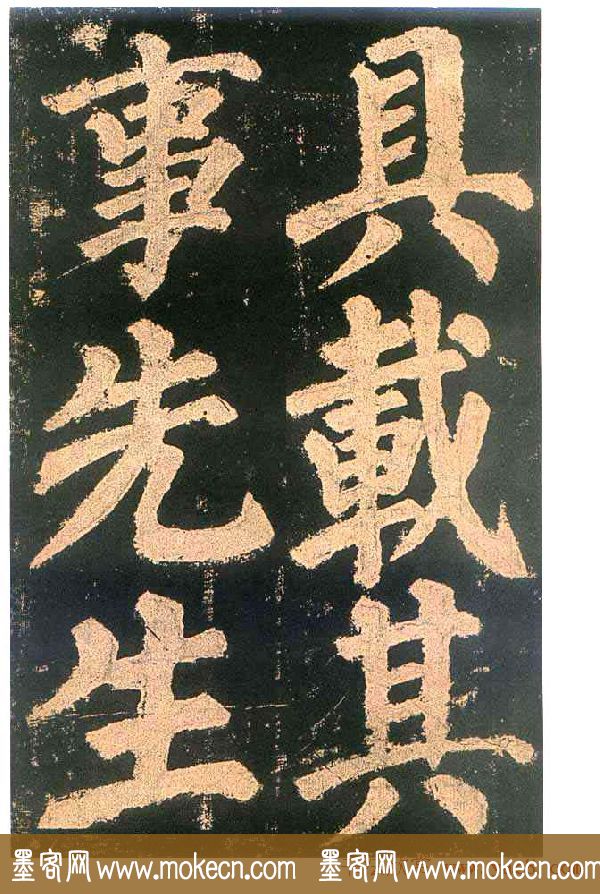 具載其
事先生
墨客网 www.mokecn.com 墨客网 www.mokecn.com